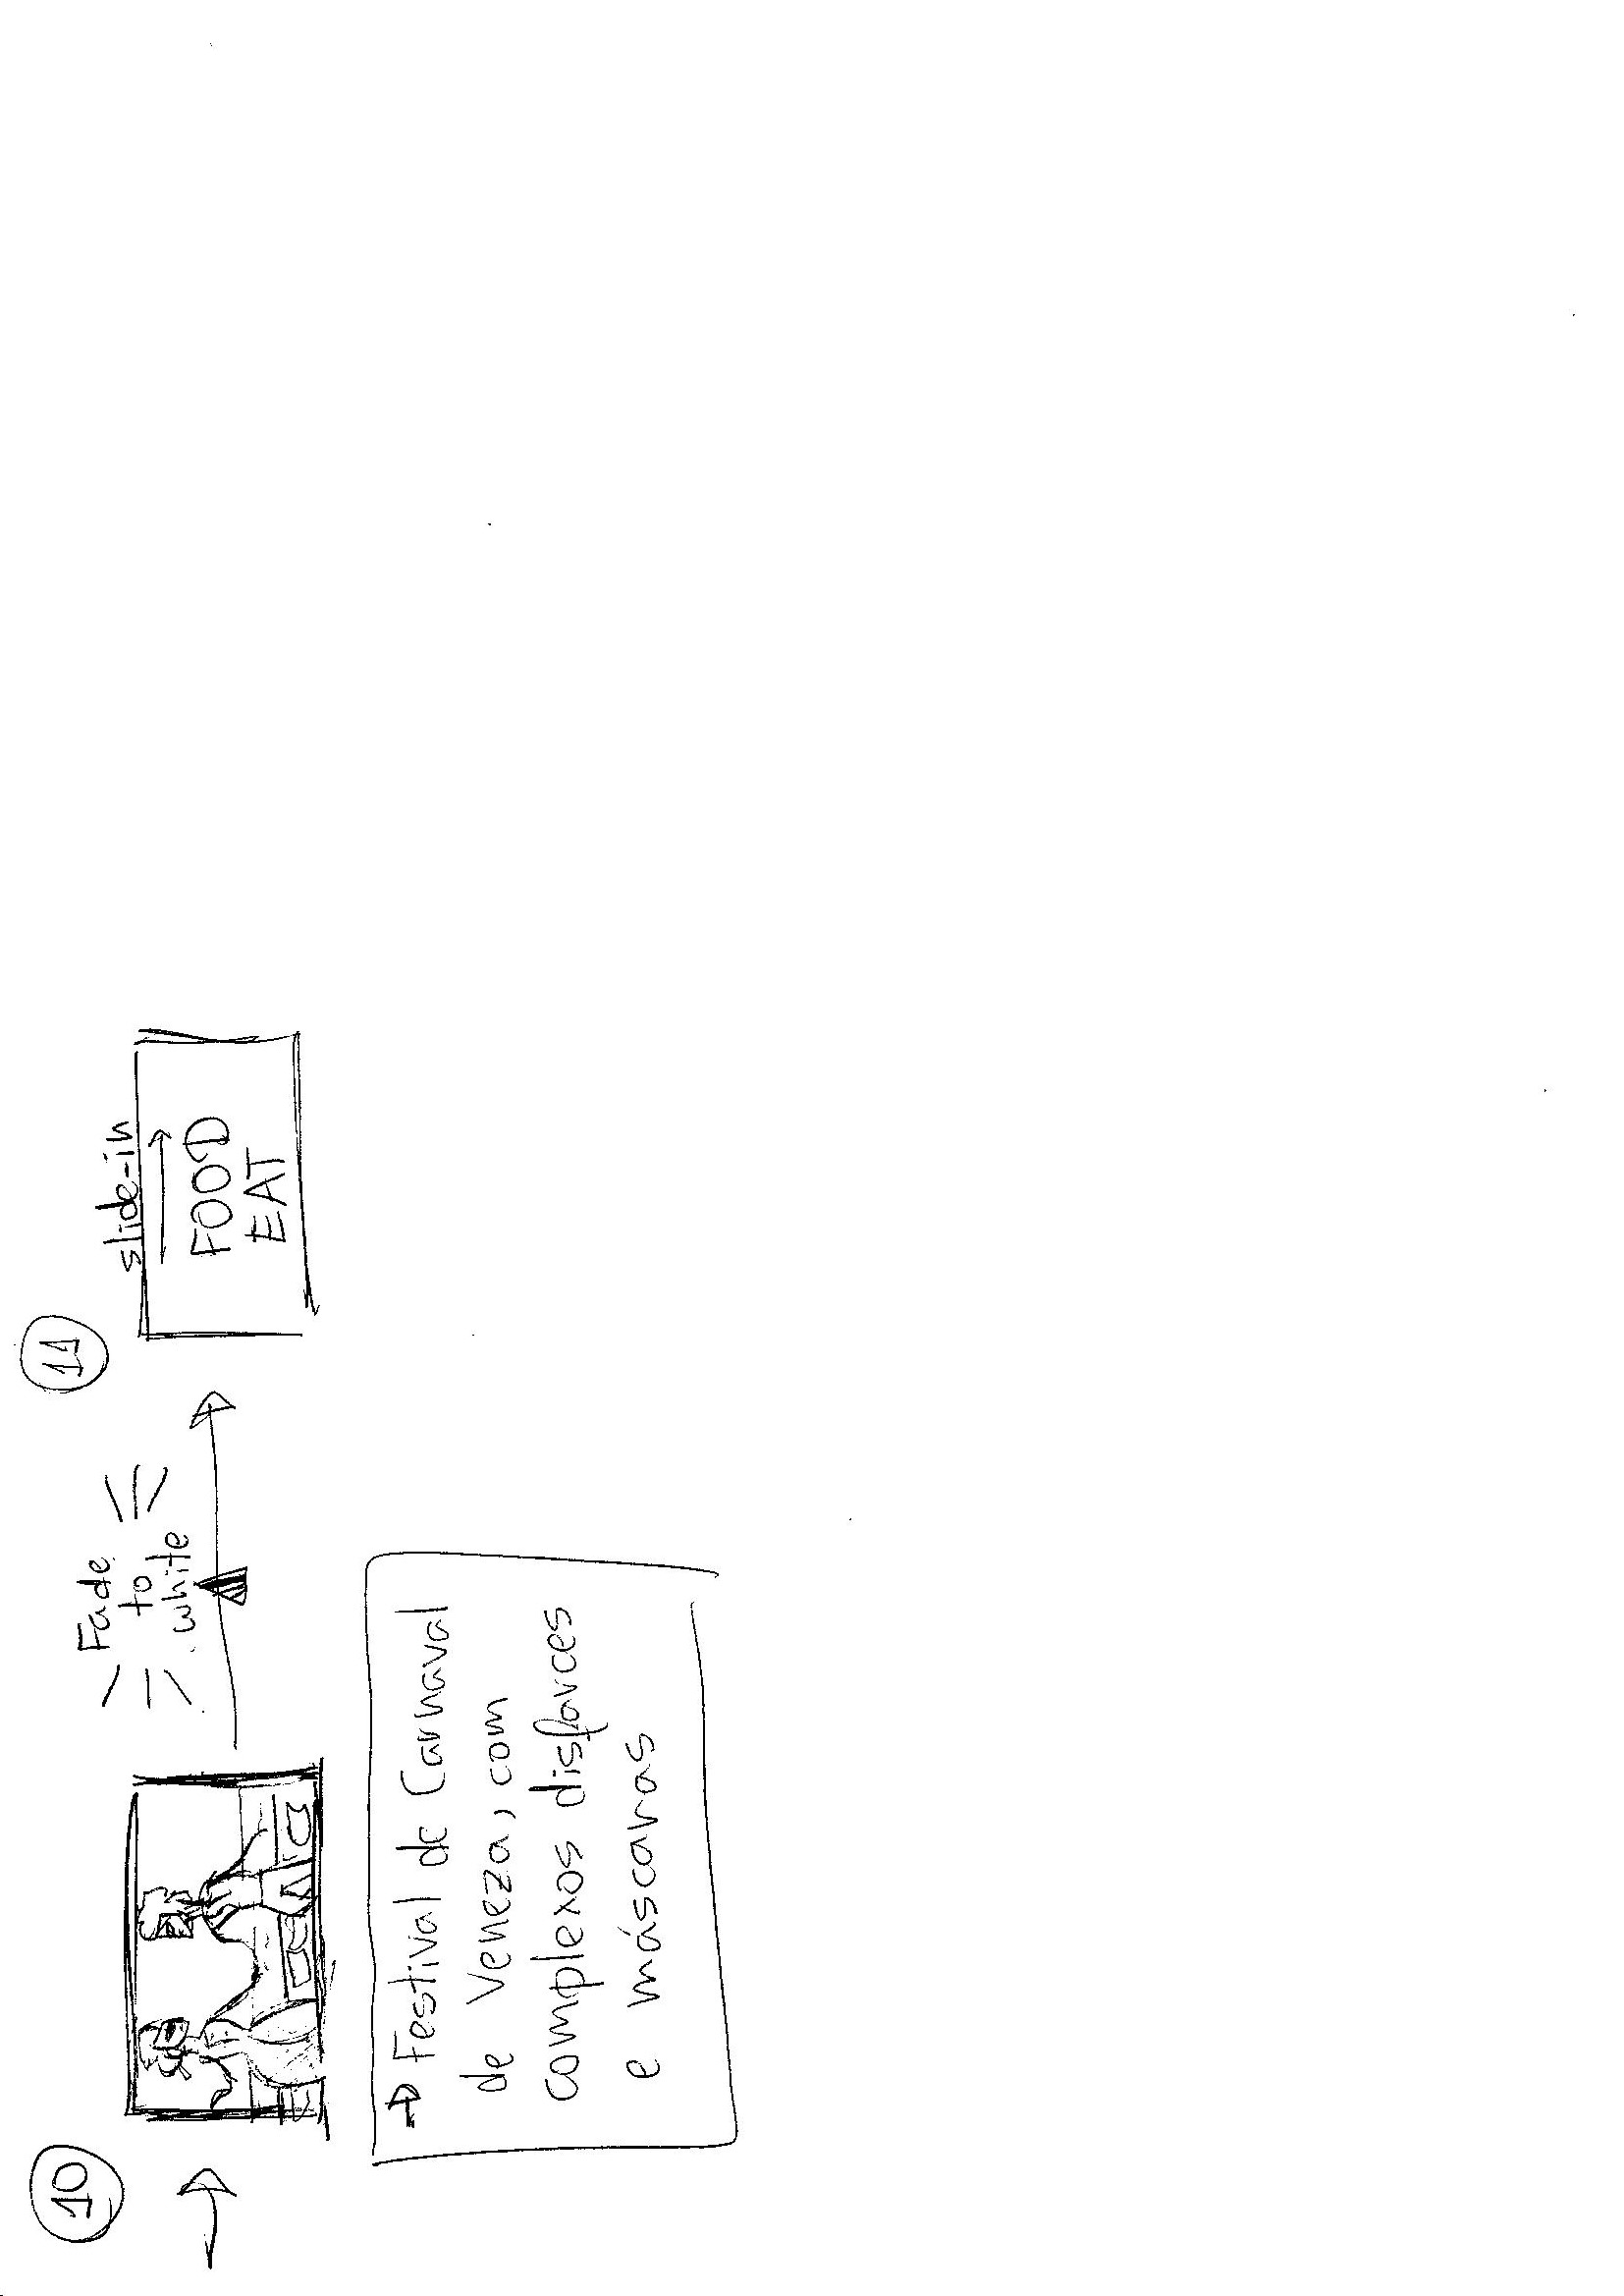 10
→ Festival de Carnaval
de Veneza, com
complexos disfarces
e máscaras
Fade
to
white
11
slide-in
FOOD
EAT